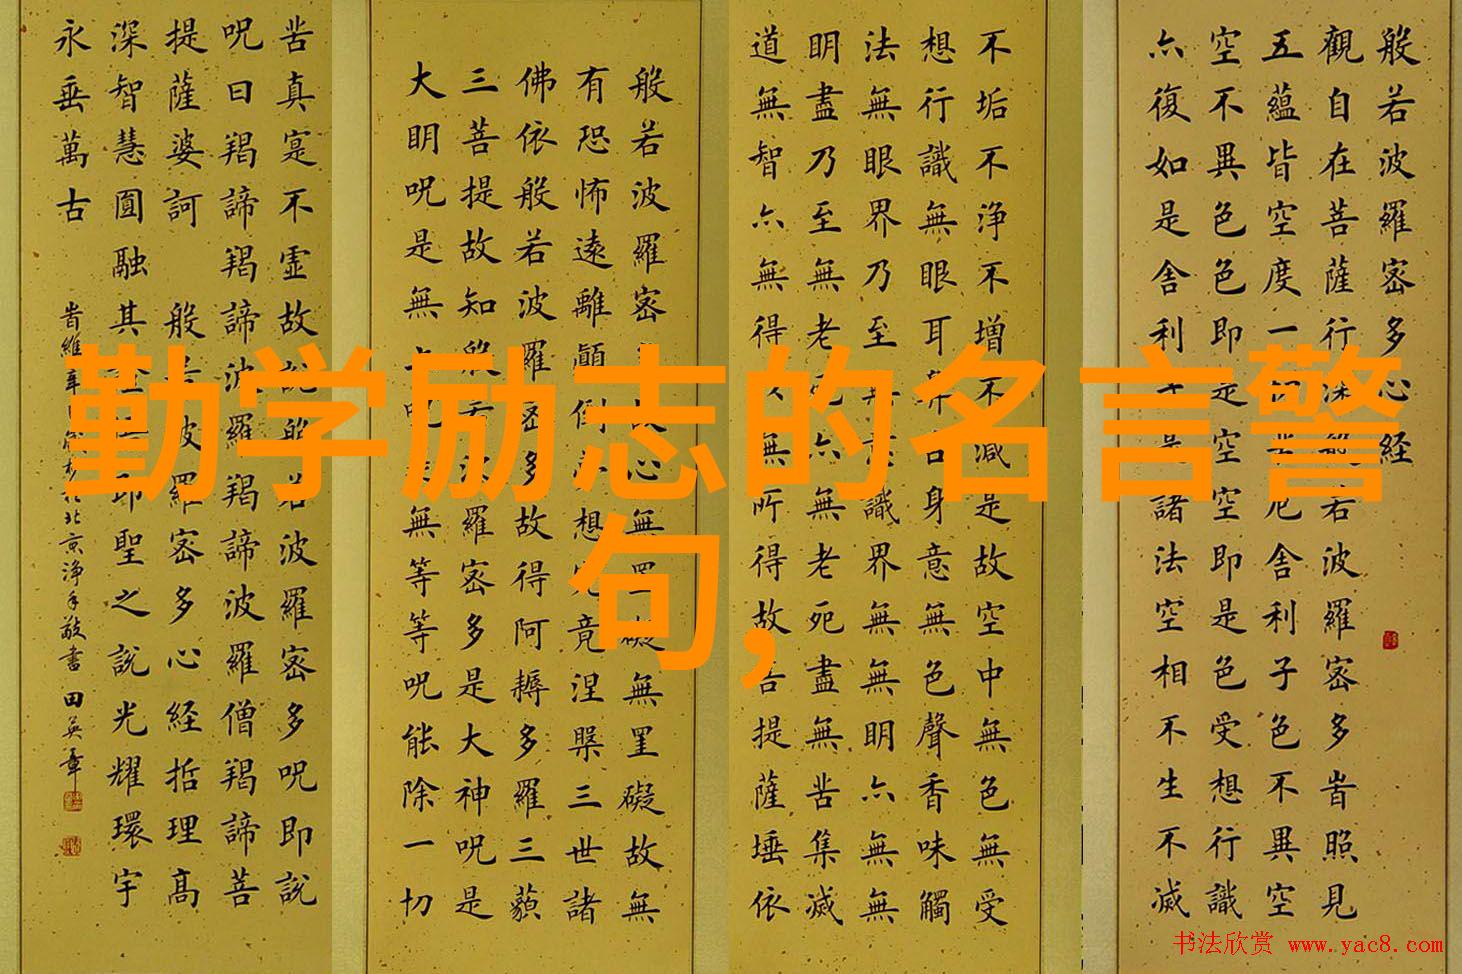 勤学励志的名言警
句,
般若波羅密多心経
觀自在菩薩行深般若波羅密多旹照見
五蘊皆空度一切苦厄舍利子色不異空
空不異色色即是空空即是色受想行識
亦復如是舍利子是諸法空相不生不滅
不垢不淨不增不減是故空中無色無受
想行識無眼耳鼻舌身意無色聲香味觸
法無眼界乃至無意識界無無明亦無無
明盡乃至無老死亦無老死盡無苦集滅
道無智亦無得以無所得故菩提薩埵依
般若波羅密多故心無罣礙無罣礙故無
有恐怖遠離顛倒夢想究竟涅槃三世諸
佛依般若波羅密多故得阿耨多羅三藐
三菩提故知般若波羅密多是大神呪是
大明呪是無上呪是無等等呪能除一切
苦真寔不虛故說般若波羅密多呪即說
呪曰羯諦羯諦波羅羯諦波羅僧羯諦菩
提薩婆訶 般若波羅密多心経括理高
深智慧圓融其即聖之說光耀環宇
永垂萬古
旹維辛北京淨手敬書 田英章
书法欣赏 www.yac8.com